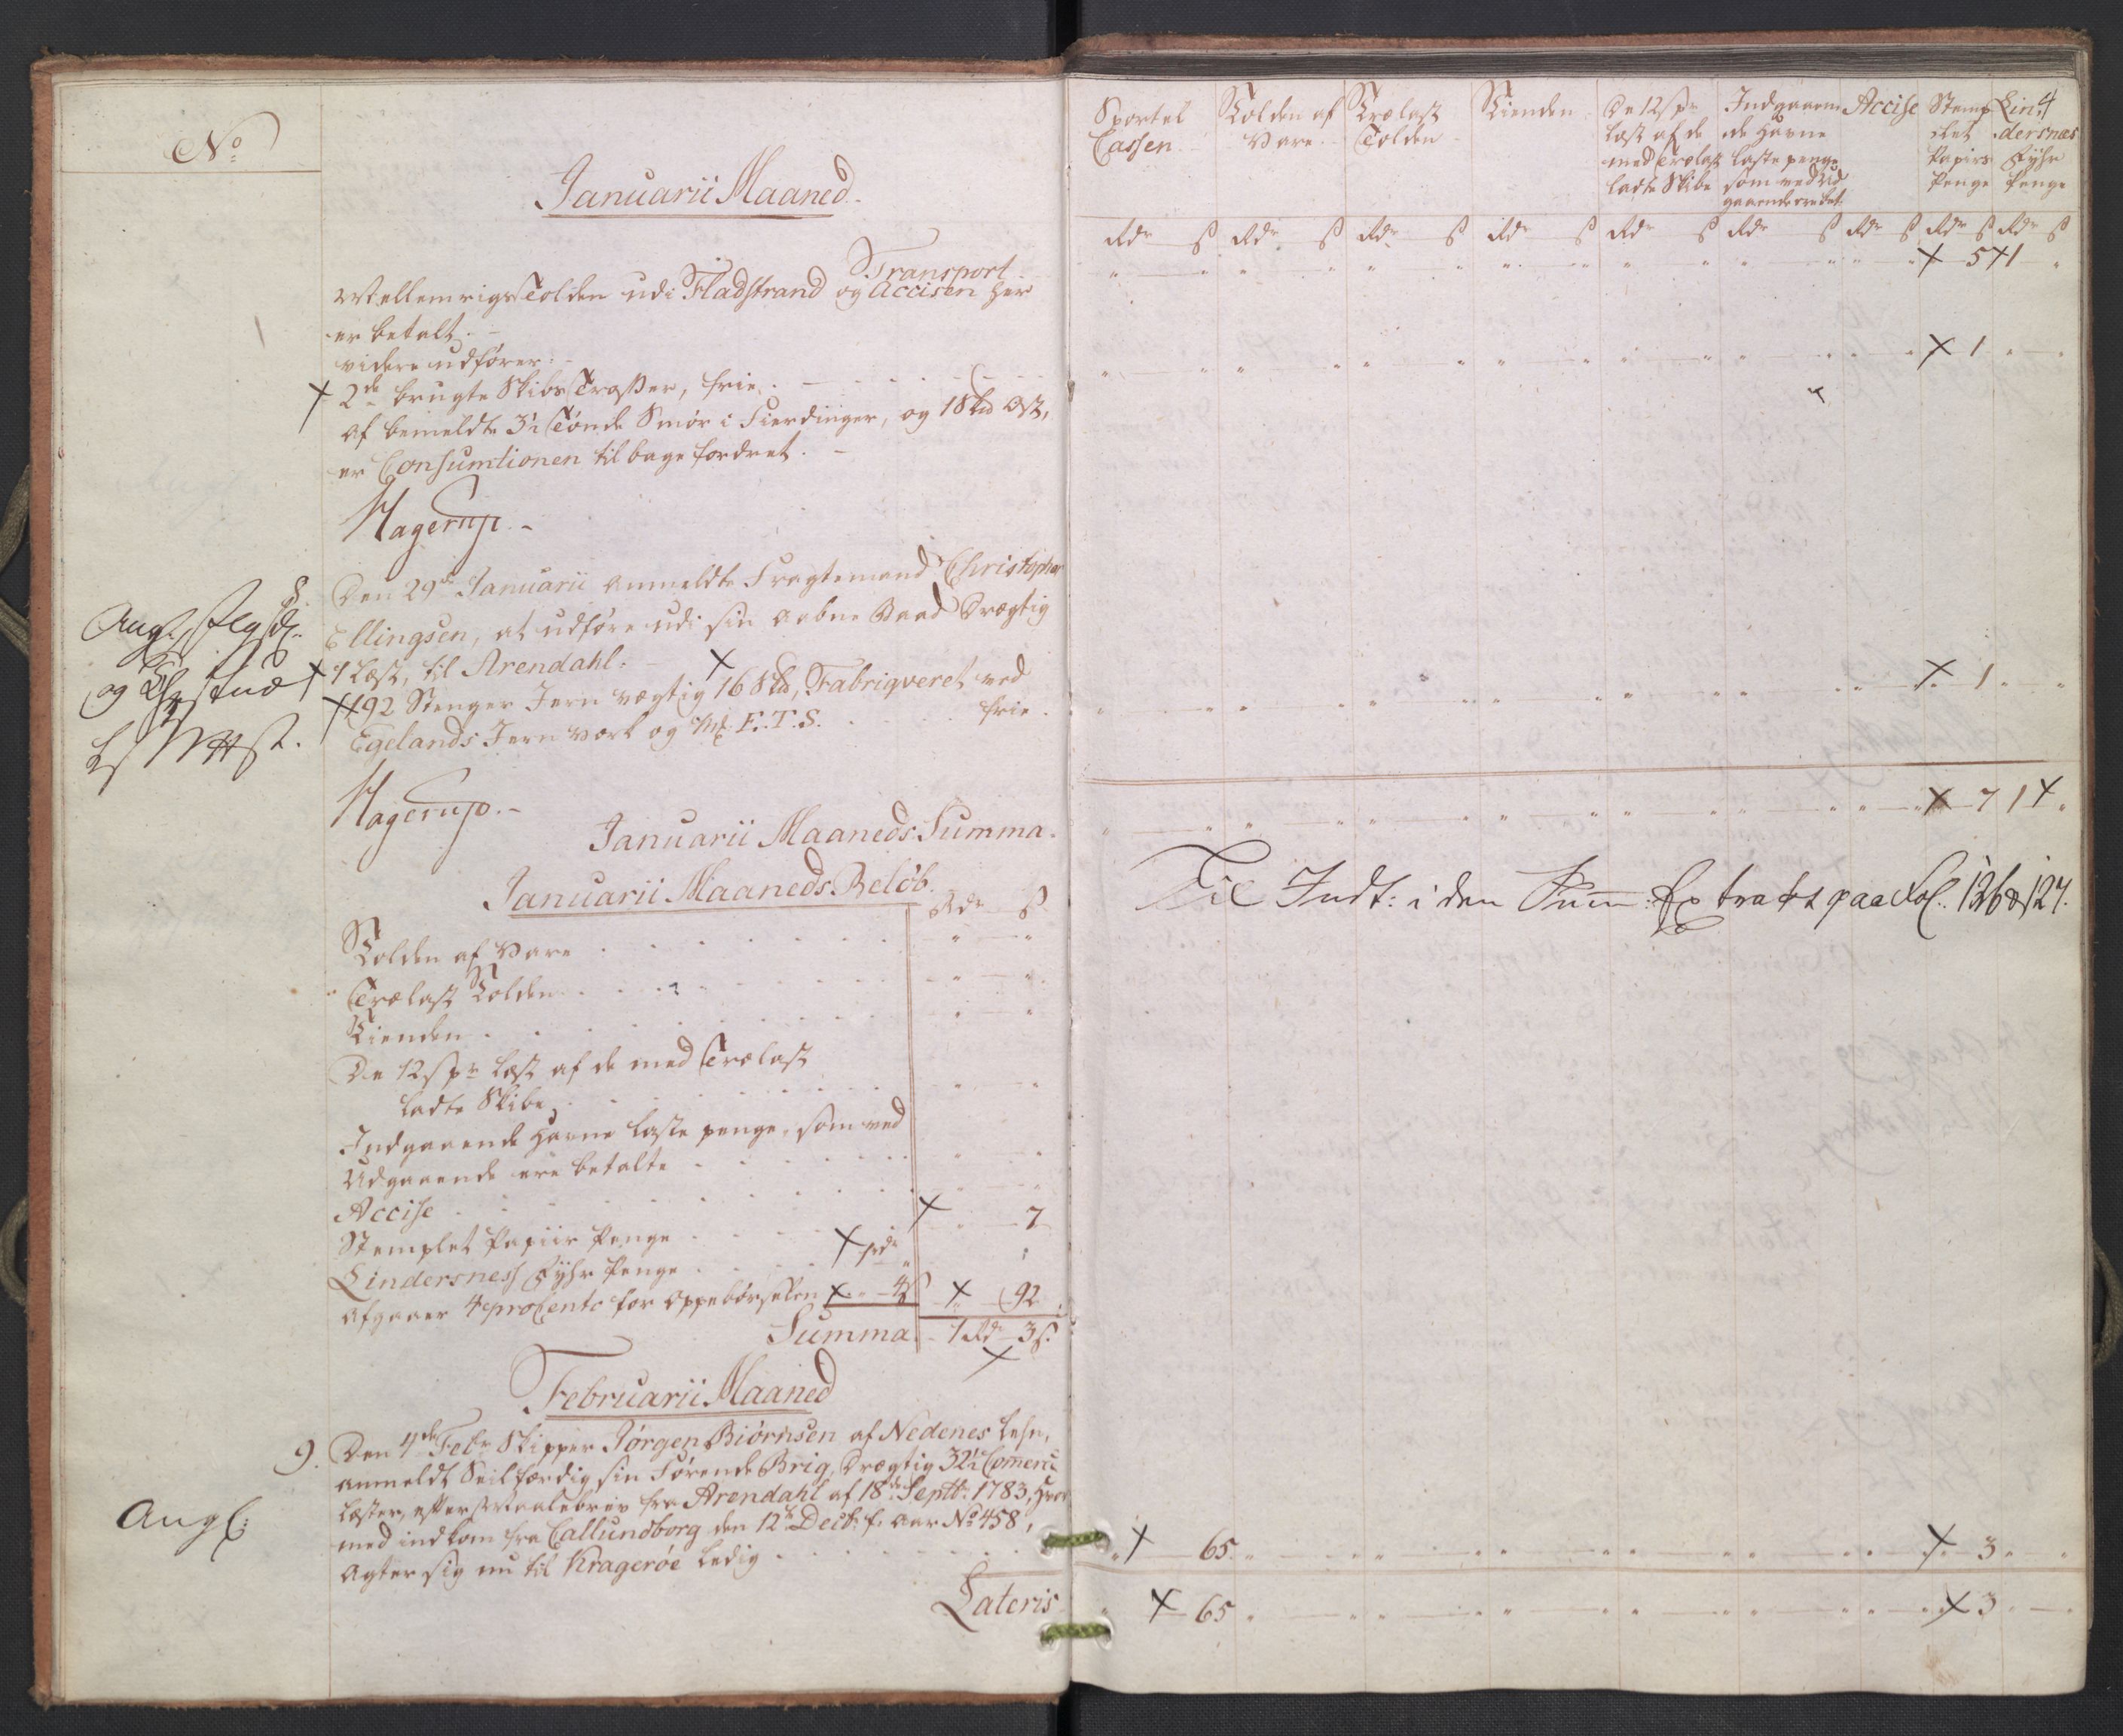 No
Januarii Maaned.
Transport
Mellemrigs Tolden udi Fladstrand og Accisen her
er betalt.
videre udfører.
2de brugte Skibs Traßer, frie.
Af bemeldte 3½ Tønde Smør i Fierdinger, og 1 Skd Ost,
er Consumtionen tilbage fordret.
Hagerup.
8.
Den 29de Januarii Anmeldte Fragtemand Christopher
Ellingsen, at udføre udi sin aabne Baad Drægtig
1 Læst, til Arendahl:
192 Stenger Jern vægtig 16 Skd, Fabriqveret ved
Egelands Jern værk og Mk F. T. S. frie.
Ang.
og
Hagerup.
Januarii Maaneds Summa.
Januarii Maaneds Beløb.
Rdr ß
Tolden af Vare
Trælast Tolden
Tienden
De 12 ß pr Læst af de med Trælast
ladte Skibe
Indgaaende Havne Laste penge, som ved
Udgaaende ere betalte
Accise
Stemplet Papiir Penge 7
Lindersness Fyhr Penge 1 rdr
Afgaaer 4 proCento for Oppebørselen 4 ß 92
Summa 1 Rdr 3 ß.
Februarii Maaned
9.
Den 4de Febr Skipper Jørgen Biørnsen af Nedenes Lehn,
anmeldt Seilfærdig sin Førende Brig, Drægtig 32½ Comerce
Læster, efter Maalebrev fra Arendahl af 18de Septbr: 1783, hvor
med indkom fra Callundborg den 12te Decbr: f. Aar No 458,
Agter sig nu til Kragerøe ledig
Ang:
Lateris
4
Sportel Cassen
Tolden af Vare
Trælast Tolden
Tienden
De 12 ß pr Læst af de med Trælast ladte Skibe
Indgaaende Havne Laste penge som ved Udgaaende ere bet.
Accise
Stemplet Papirs Penge
Lindersnæs Fyhr Penge
Rdr ß Rdr ß Rdr ß Rdr ß Rdr ß Rdr ß Rdr ß Rdr ß Rdr ß
5 1
1
1
7 1
Til Indt: i den Sum: Extract paa Fol. 126 & 127.
65 3
65 3